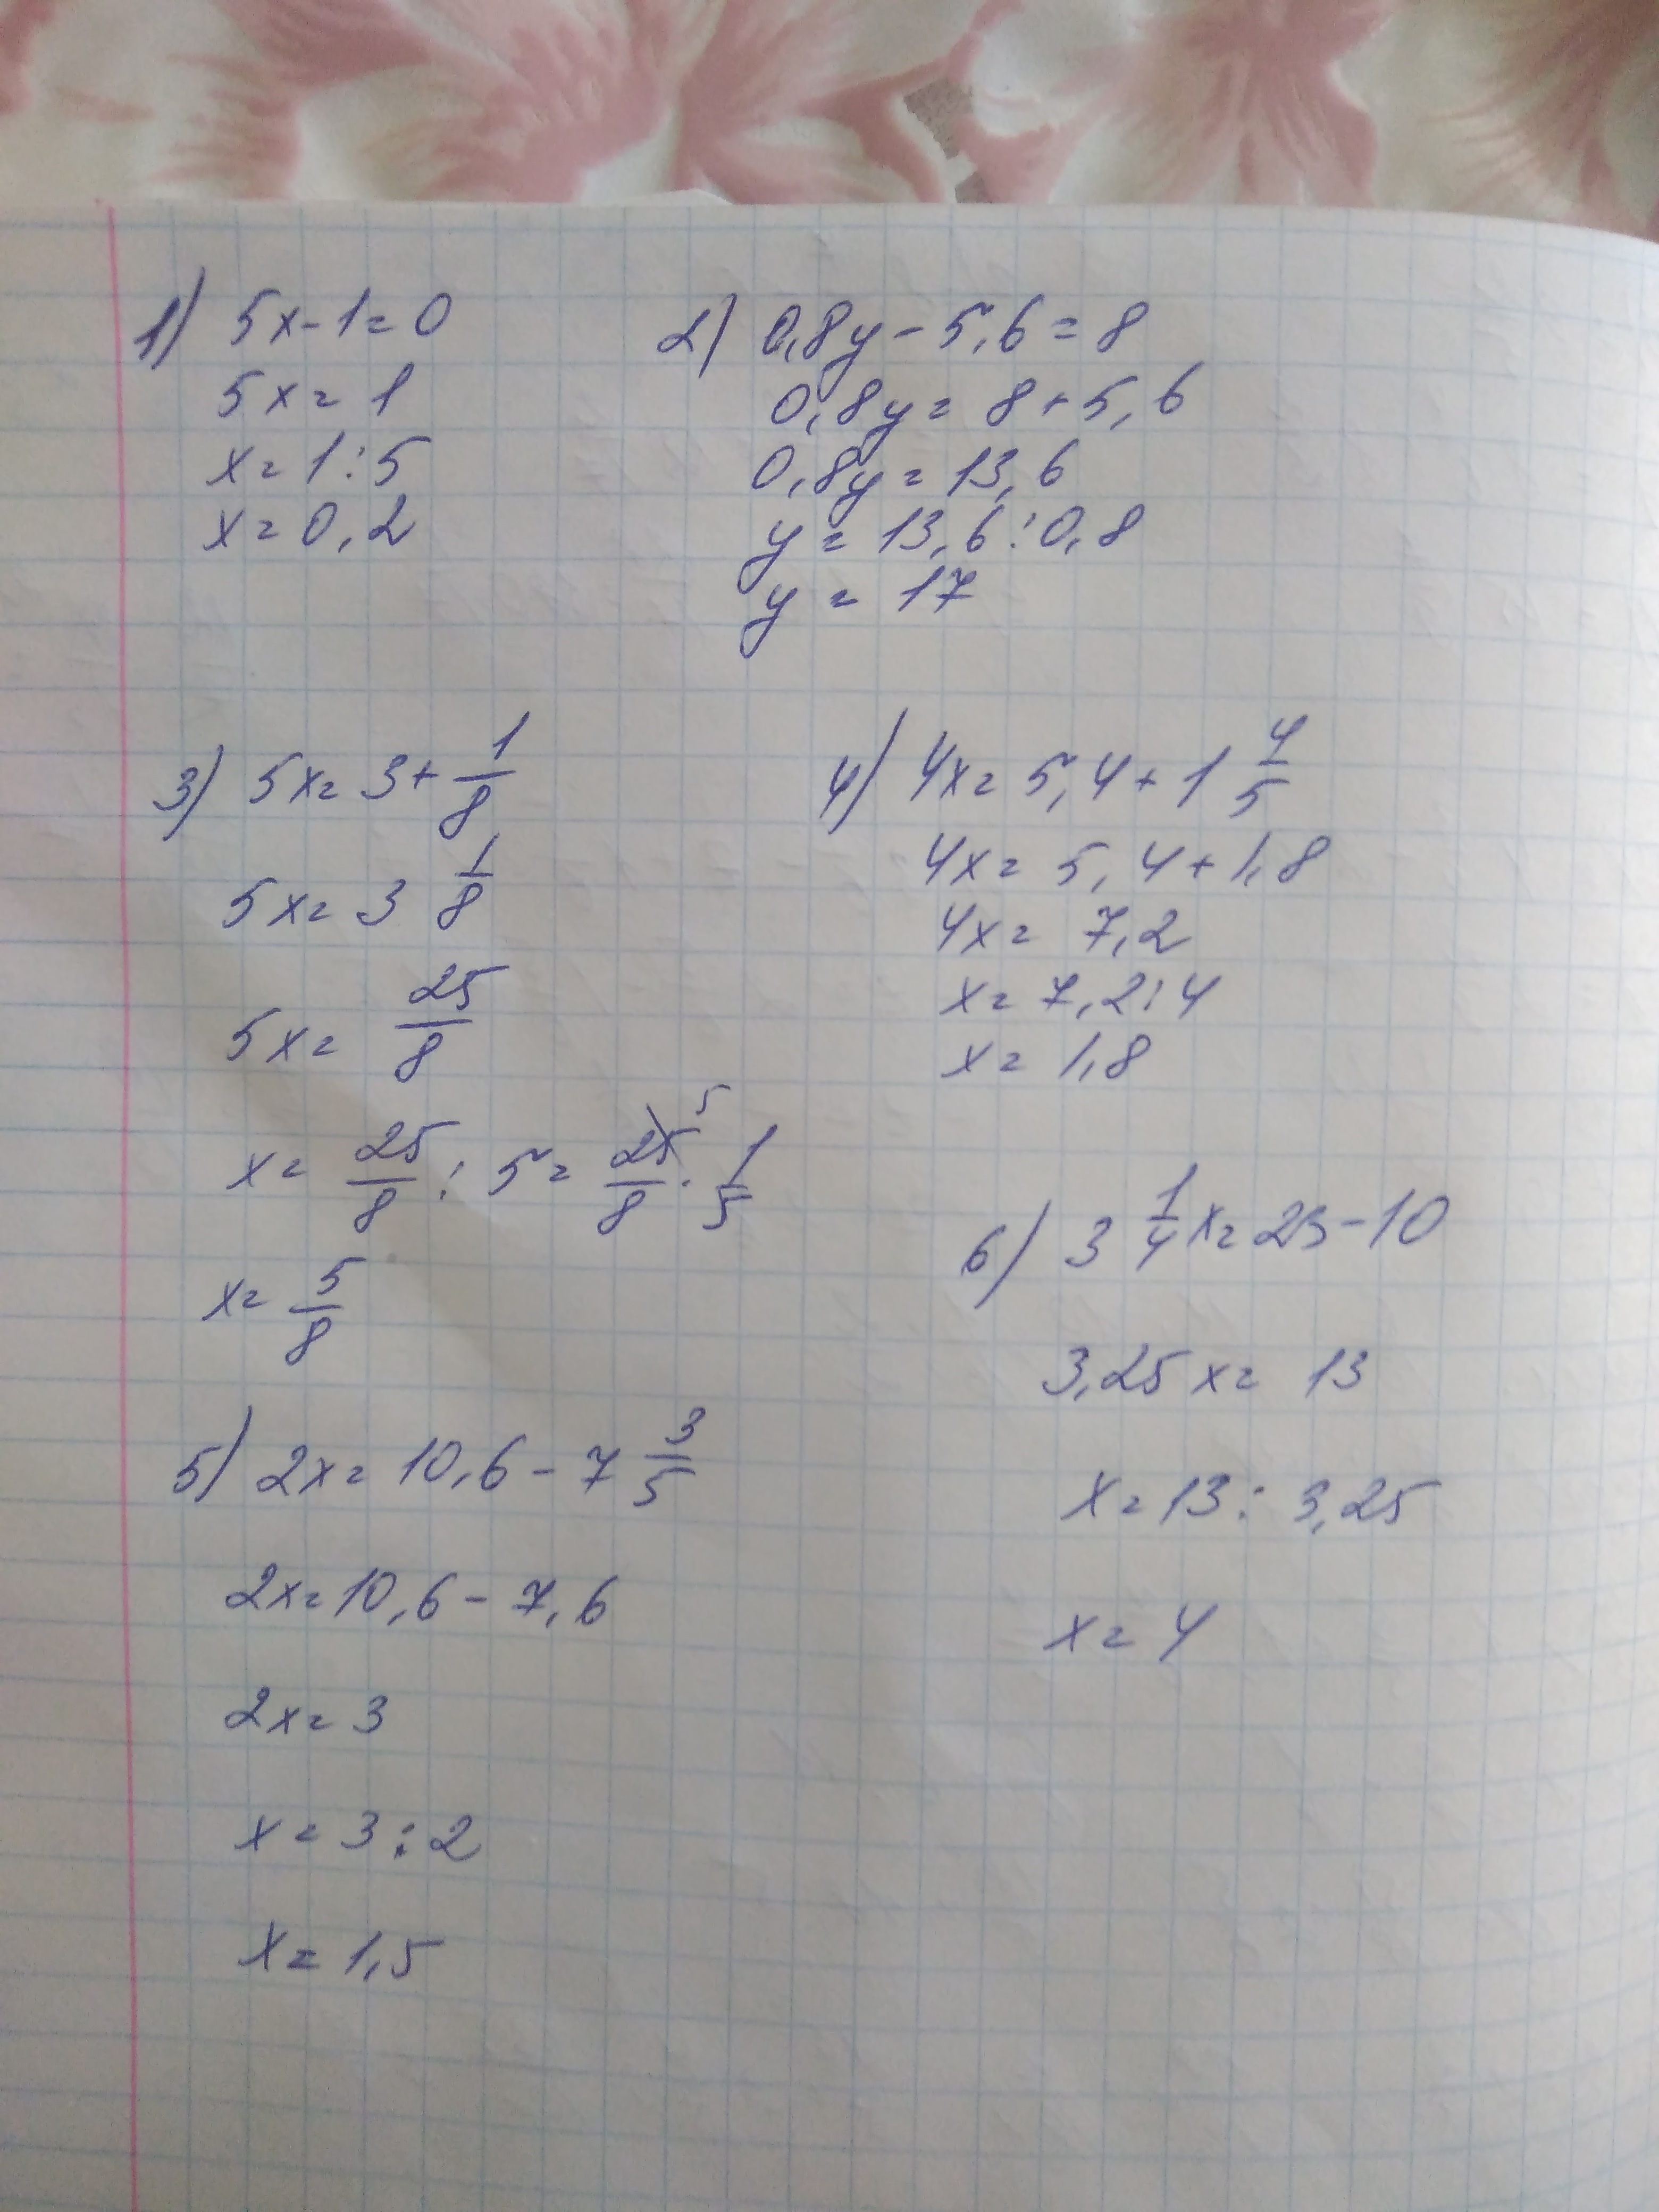 1) 5x-1=0
5x=1
x=1:5
x=0,2
2) 0,8y-5,6=8
0,8y=8+5,6
0,8y=13,6
y=13,6:0,8
y=17
3) 5x=3+1/8
5x=3 1/8
5x=25/8
x=25/8:5=25/8·1/5 5
x=5/8
4) 4x=5,4+1 4/5
4x=5,4+1,8
4x=7,2
x=7,2:4
x=1,8
5) 2x=10,6-7 3/5
2x=10,6-7,6
2x=3
x=3:2
x=1,5
6) 3 1/4x=23-10
3,25x=13
x=13:3,25
x=4